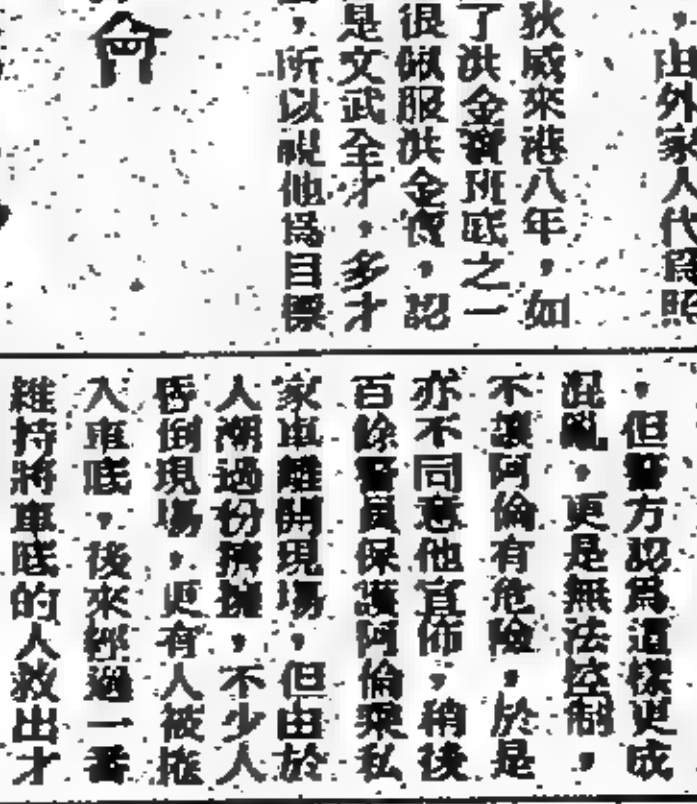 ，由外家人代爲照
狄威來港八年，如
了洪金寶班底之一
很佩服洪金寶，認
是文武全才，多才
，所以視他爲目標
，但警方認爲這樣更成
混亂，更是無法控制，
不讓阿倫有危險，於是
亦不同意他宣佈，稍後
百餘警員保護阿倫乘私
家車離開現場，但由於
人潮過份擠擁，不少人
昏倒現場，更有人被拖
入車底，後來經過一番
維持將車底的人救出才